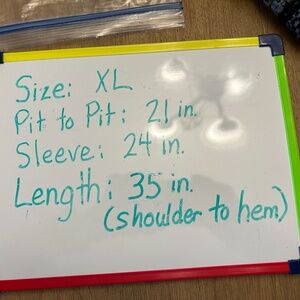 Size: XL
Pit to Pit: 21 in.
Sleeve: 24 in.
Length: 35 in.
(shoulder to hem)